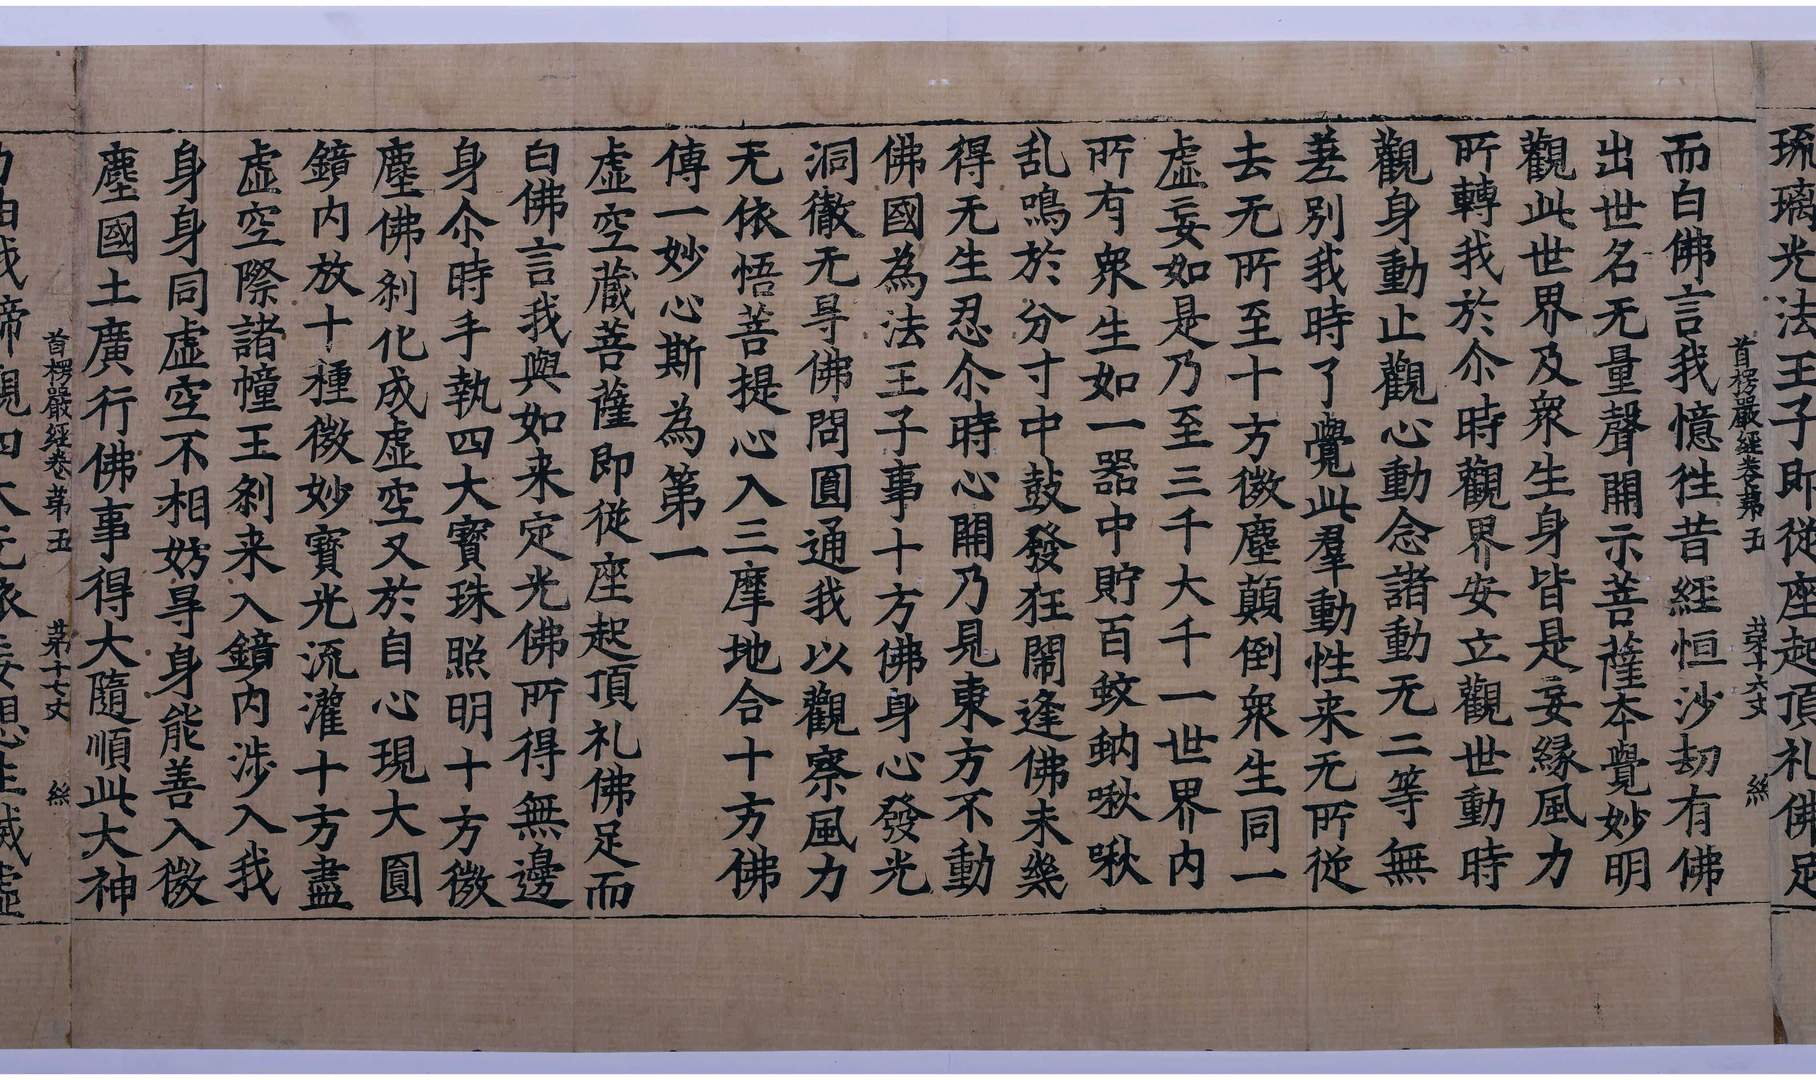 琉璃光法王子即從座起頂礼佛足
首楞嚴經卷苐五 苐十六丈 絲
而白佛言我憶徃昔經恒沙劫有佛
出世名无量聲開示菩薩本覺妙明
觀此世界及衆生身皆是妄緣風力
所轉我於尒時觀界安立觀世動時
觀身動止觀心動念諸動无二等無
差別我時了覺此羣動性来无所從
去无所至十方微塵顛倒衆生同一
虛妄如是乃至三千大千一世界内
所有衆生如一器中貯百蚊蚋啾啾
乱鳴於分寸中鼓發狂鬧逢佛未幾
得无生忍尒時心開乃見東方不動
佛國為法王子事十方佛身心發光
洞徹无㝵佛問圓通我以觀察風力
无依悟菩提心入三摩地合十方佛
傳一妙心斯為第一
虛空藏菩薩即從座起頂礼佛足而
白佛言我與如来定光佛所得無邊
身尒時手執四大寶珠照明十方微
塵佛剎化成虛空又於自心現大圓
鏡内放十種微妙寶光流灌十方盡
虛空際諸幢王剎来入鏡内涉入我
身身同虛空不相妨㝵身能善入微
塵國土廣行佛事得大隨順此大神
首楞嚴經卷苐五 苐十七丈 絲
力由我諦觀四大无依妄想生滅虛